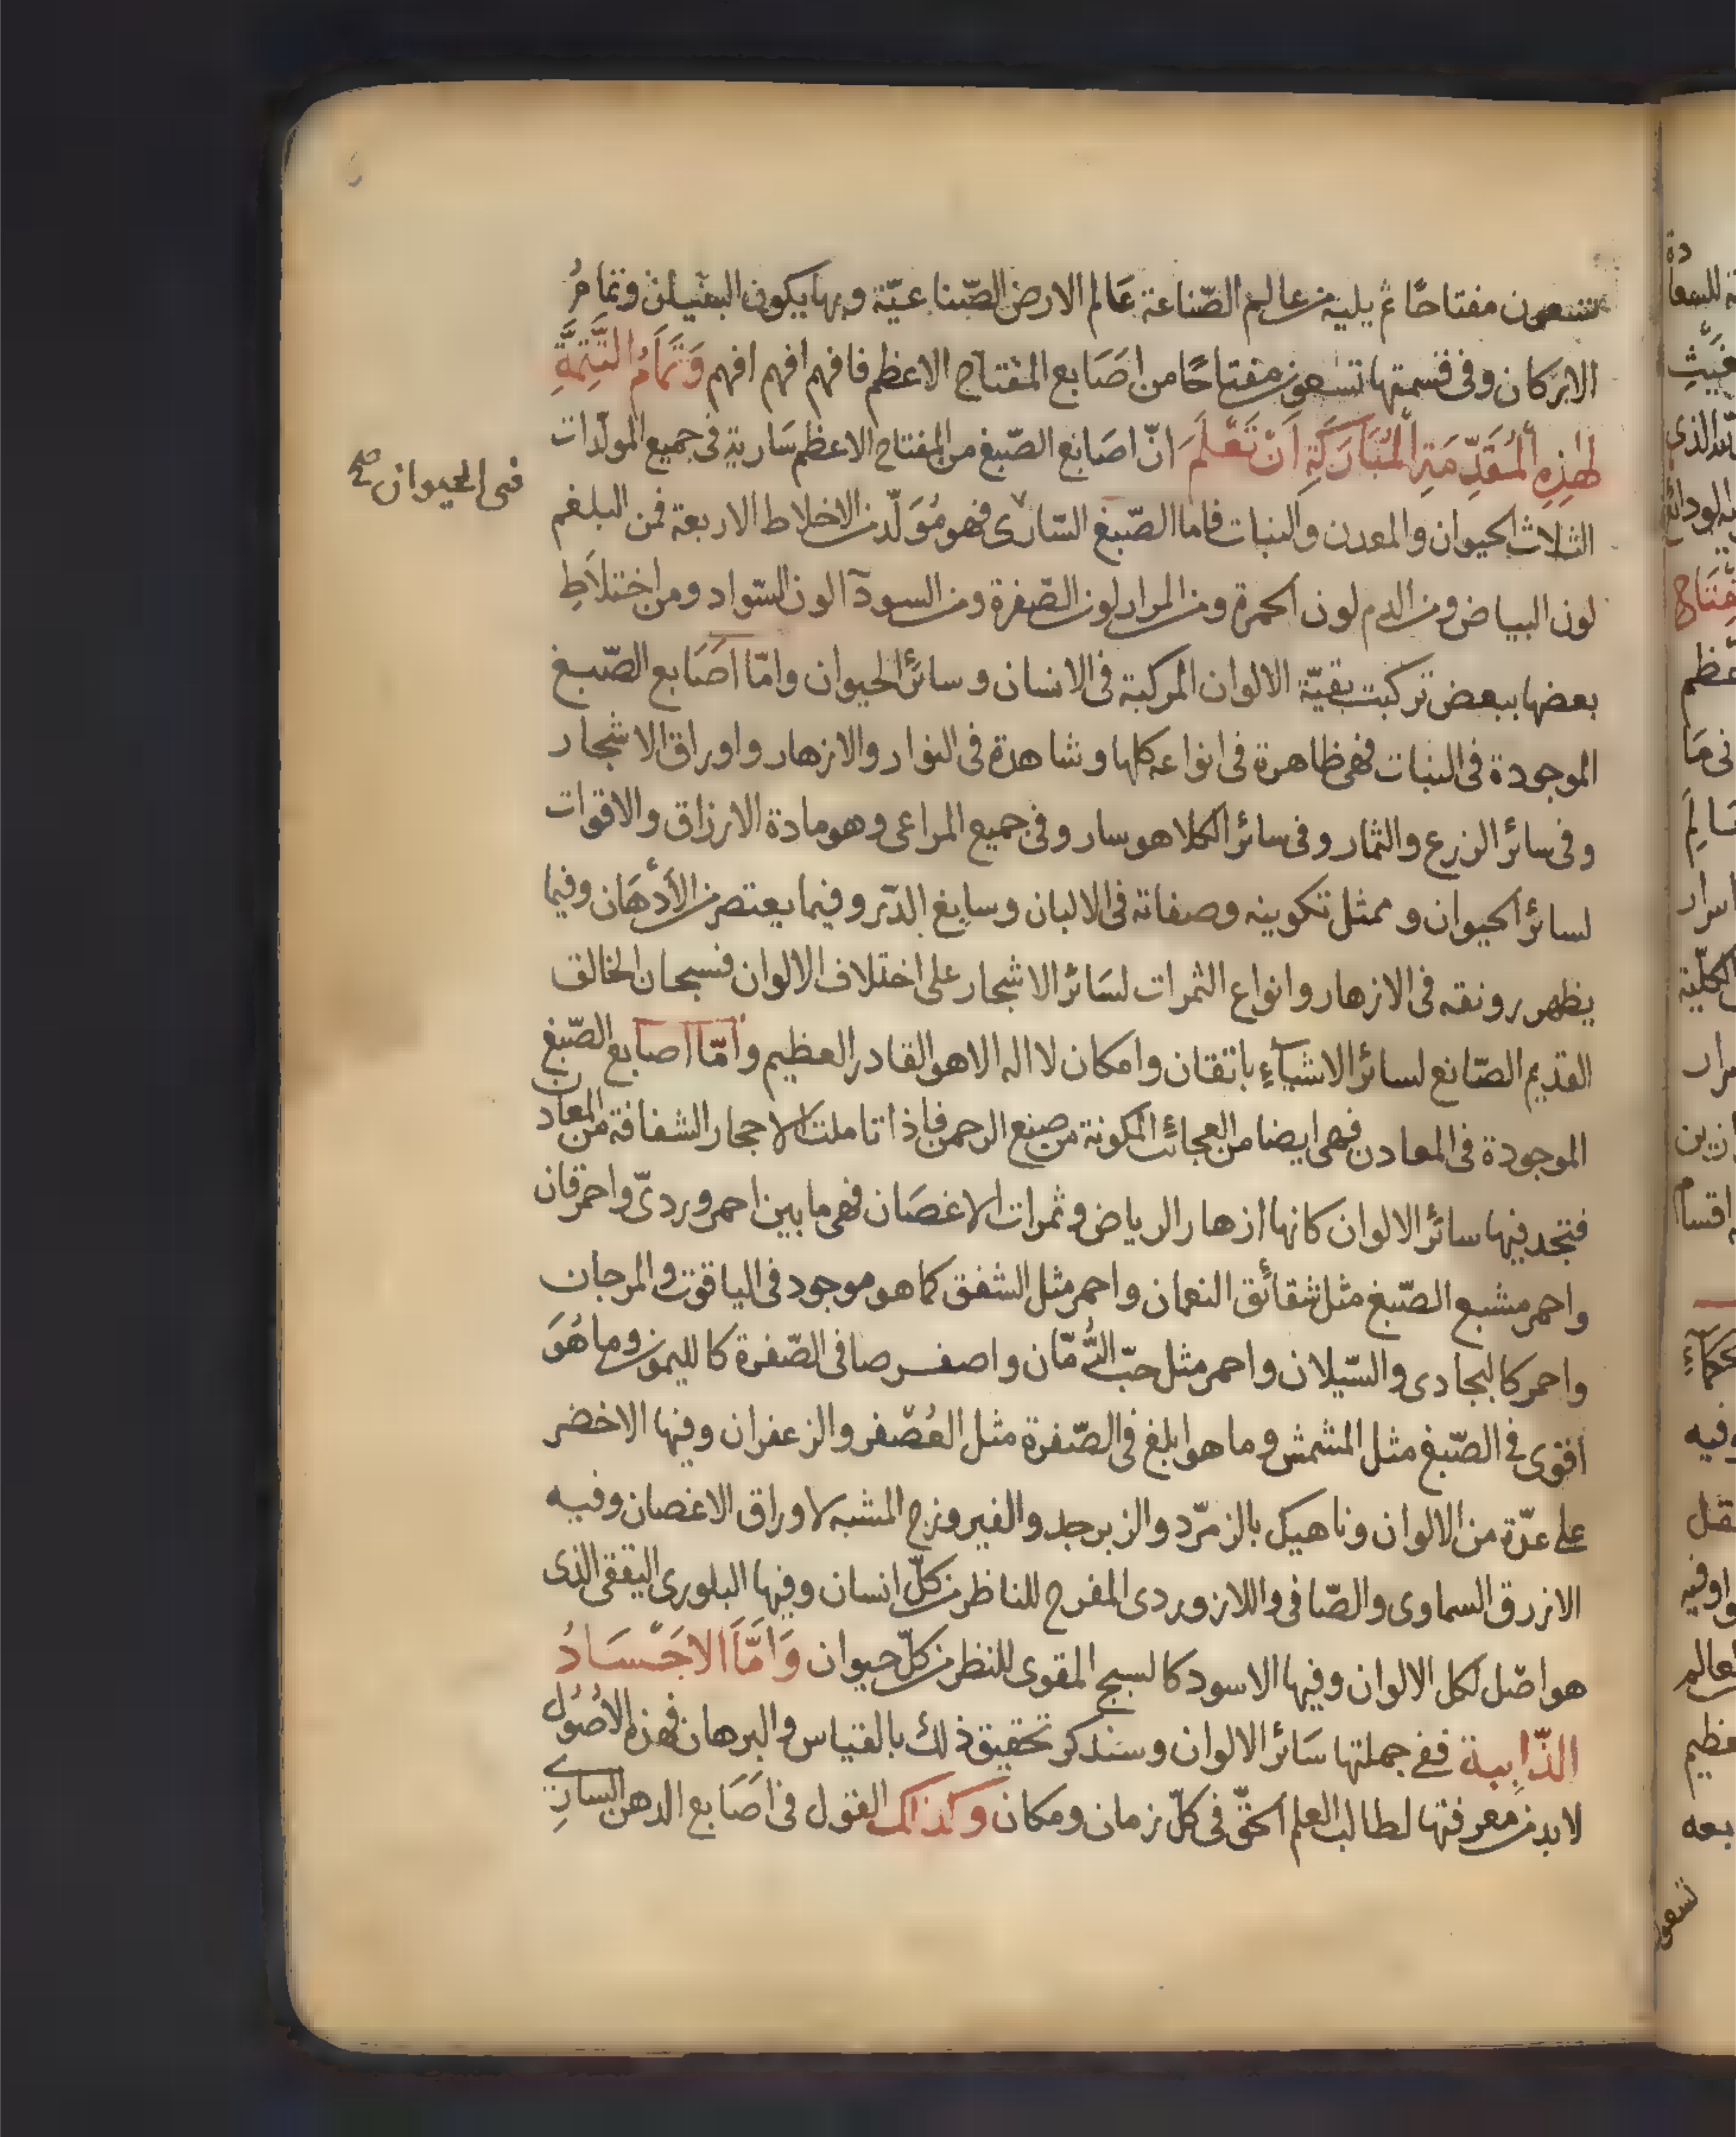 تسعون مفتاحًا ثم يليه من عالم الصّناعة عَالم الارض الصّناعيّة وبها يكون البنيان وتمامُ
الاركان وفى قسمتها تسعون مفتاحًا من اصَابع المفتاح الاعظم فافهم افهم افهم وَتَمَامُ التَّتِمَّةِ
لهٰذِهِ الْمُقَدِّمَةِ الْمُبَارَكَةِ اَنْ تَعْلَمَ انّ اصَابع الصّبغ من المفتاح الاعظم سَارية فى جميع المولّدات
الثلاث الحيوان والمعدن والنبات فاما الصّبغ السّارى فهو مُوَلّد من الاخلاط الاربعة فمن البلغم
فى الحيوان صح
لون البياض ومن الدم لون الحمرة ومن المرار لون الصّفرة ومن السودآ لون السّواد ومن اختلاَطِ
بعضها ببعض تركبت بقيّة الالوان المركبة فى الانسان وسائر الحيوان وامّا اصَابع الصّبغ
الموجودة فى النبات فهى ظاهرة فى انواعه كلها وشاهدة فى النوار والازهار واوراق الاشجار
وفى سائر الزرع والثمار وفى سائر الكلا هو سار وفى جميع المراعى وهو مادة الارزاق والاقوات
لسائر الحيوان وممثل تكوينه وصفاته فى الالبان وسابغ الدّر وفيما يعتصر من الأدْهَان وفيما
يظهر رونقه فى الازهار وانواع الثمرات لسَائر الاشجار على اختلاف الالوان فسبحان الخالق
القديم الصّانع لسائر الاشيآءِ باتقان وامكان لا اله الا هو القادر العظيم وامّا اصابع الصّبغ
الموجودة فى المعادن فهى ايضا من العجائب المكونة من صنع الرحمن فاذا تاملت الاحجار الشفافة من المعادن
فتجد فيها سائر الالوان كانها ازهار الرياض وثمرات الاغصَان فهى ما بين احمر وردىّ واحمر قان
واحمر مشبع الصّبغ مثل شقائق النعمان واحمر مثل الشفق كما هو موجود فى الياقوت والمرجان
واحمر كالبجادى والسّيلان واحمر مثل حبّ الرُّمّان واصفر صافى الصّفرة كالليمون وما هُوَ
أقوى فى الصّبغ مثل المشمش وما هو ابلغ فى الصّفرة مثل العُصْفر والزعفران وفيها الاخضر
على عدّة من الالوان وناهيك بالزمرّد والزبرجد والفيروزج المشبه لاوراق الاغصان وفيه
الازرق السماوى والصّافى واللازوردى المفرح للناظر من كلّ انسان وفيها البلورى اليققى الذى
هو اصْل لكل الالوان وفيها الاسود كالسبج المقوى للنظر من كلّ حيوان وَاَمّاَ الاجَسَادُ
الذّايبة ففى جملتها سَائر الالوان وسنذكر تحقيق ذلك بالقياس والبرهان فهذه الاُصُول
لابد من معرفتها لطالب العلم الحقّ فى كلّ زمان ومكان وكذلك القول فى اصَابع الدهن السارِى